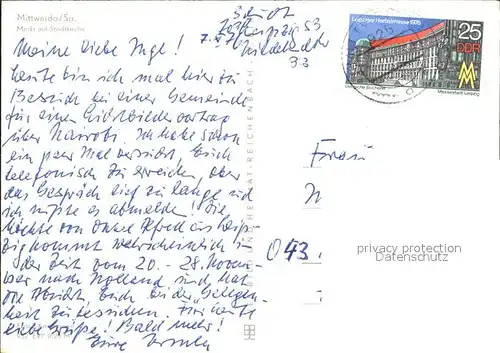 Mittweida/Sa.
Markt mit Stadtkirche
7.
Leipzig 53
33
Meine liebe Inge!
Heute bin ich mal hier zu
Besuch bei einer Gemeinde
für einen Lichtbildervortrag
über Nairobi. Ich habe schon
ein paar Mal versucht, Euch
telefonisch zu erreichen, aber
das Gespräch lief zu lange und
ich mußte es abmelden! Die
von Onkel Alfred aus Leip-
zig kommt wahrscheinlich in
der Zeit vom 20. - 28. Novem-
ber nach Holland und hat
die Absicht, Euch bei der Gelegen-
heit zu besuchen. Für heute
liebe Grüße! Bald mehr!
Eure Ursula
REICHENBACH
Leipziger Herbstmesse 1976
25
DDR
MM
Deutsche Bücherei
Messestadt Leipzig
Frau
N
043
privacy protection
Datenschutz